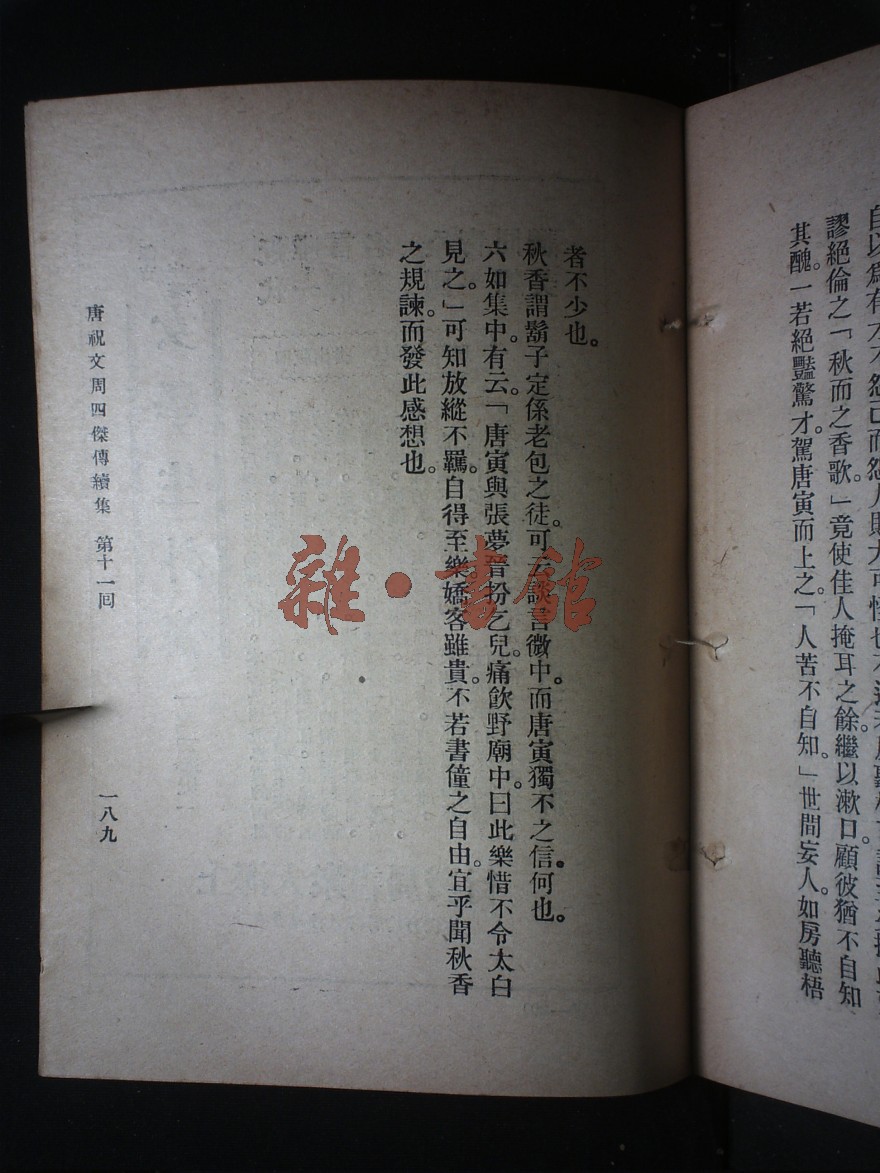 自以爲有才不怨己而怨人則大可怪也
謬絕倫之「秋而之香歌。」竟使佳人掩耳之餘。繼以漱口。顧彼猶不自知
其醜。一若絕豔驚才。駕唐寅而上之。「人苦不自知。」世間妄人。如房聽梧
者不少也。
秋香謂鬍子定係老包之徒。可云談言微中。而唐寅獨不之信。何也。
六如集中。有云。「唐寅與張夢晉扮乞兒。痛飲野廟中。曰此樂惜不令太白
見之。」可知放縱不羈。自得至樂。嬌客雖貴。不若書僮之自由。宜乎聞秋香
之規諫。而發此感想也。
唐祝文周四傑傳續集 第十一回
一八九
雜·書館